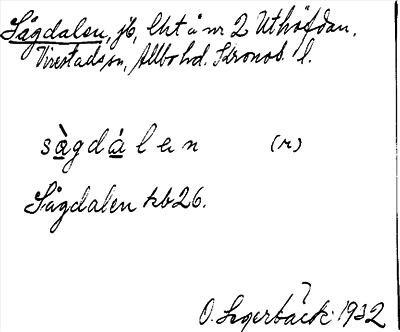 Sågdalen, jb, lht å nr 2 Uthöfdan,
Virestads sn, Allbo hd. Kronob. l.
sà̱gdá̱len (r)
Sågdalen kb 26.
O. Lagerbäck 1932